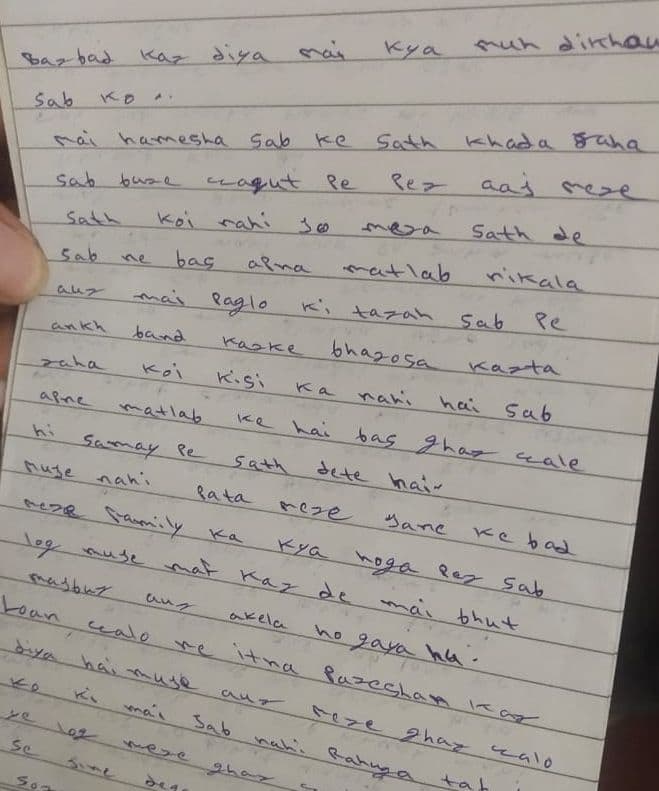 Barbad kar diya mai kya muh dikhau
sab ko ..
mai hamesha sab ke sath khada raha
sab bure waqut pe per aaj mere
sath koi nahi jo mera sath de
sab ne bas apna matlab nikala
aur mai paglo ki tarah sab pe
ankh band karke bharosa karta
raha koi kisi ka nahi hai sab
apne matlab ke hai bas ghar wale
hi samay pe sath dete hai.
muje nahi pata mere jane ke bad
mere family ka kya hoga per sab
log muje maf kar de mai bhut
majbur aur akela ho gaya hu.
Loan walo ne itna pareshan kar
diya hai muje aur mere ghar walo
ko ki mai sab nahi
ye log mere ghar
se